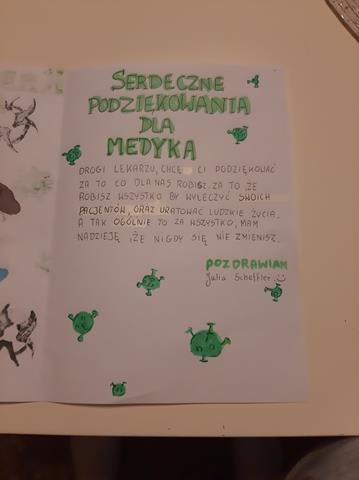 SERDECZNE
PODZIĘKOWANIA
DLA
MEDYKA
DROGI LEKARZU, CHCĘ CI PODZIĘKOWAĆ
ZA TO CO DLA NAS ROBISZ. ZA TO ŻE
ROBISZ WSZYSTKO BY WYLECZYĆ SWOICH
PACJENTÓW, ORAZ URATOWAĆ LUDZKIE ŻYCIA.
A TAK OGÓLNIE TO ZA WSZYSTKO, MAM
NADZIEJĘ, ŻE NIGDY SIĘ NIE ZMIENISZ.
POZDRAWIAM
Julia Scheffler